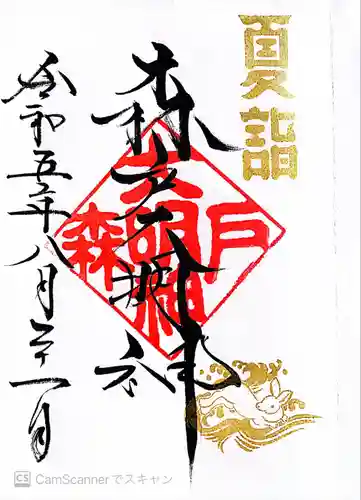 夏詣
森戸大明神
森戸大明神
令和五年八月二十一日
CS CamScannerでスキャン